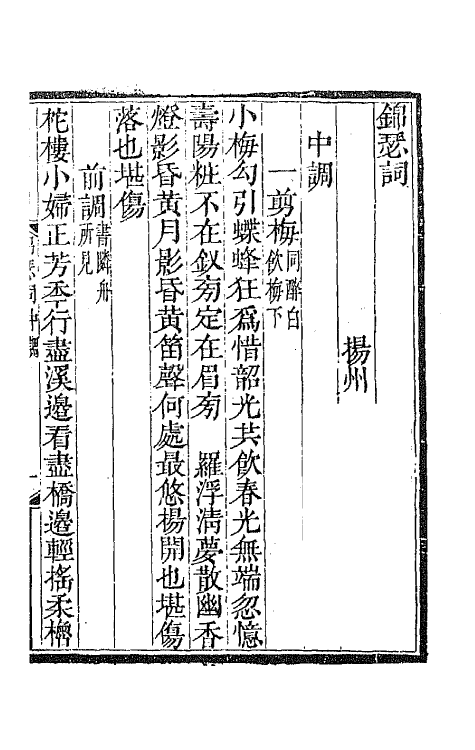 錦瑟詞
揚州
中調
一剪梅同醉白飲梅下
小梅勾引蝶蜂狂爲惜韶光共飲春光無端忽憶
壽陽粧不在釵旁定在眉旁　羅浮淸夢散幽香
燈影昏黃月影昏黃笛聲何處最悠楊開也堪傷
落也堪傷
前調書隣舟所見
柁樓小婦正芳年行盡溪邊看盡橋邊輕搖柔櫓